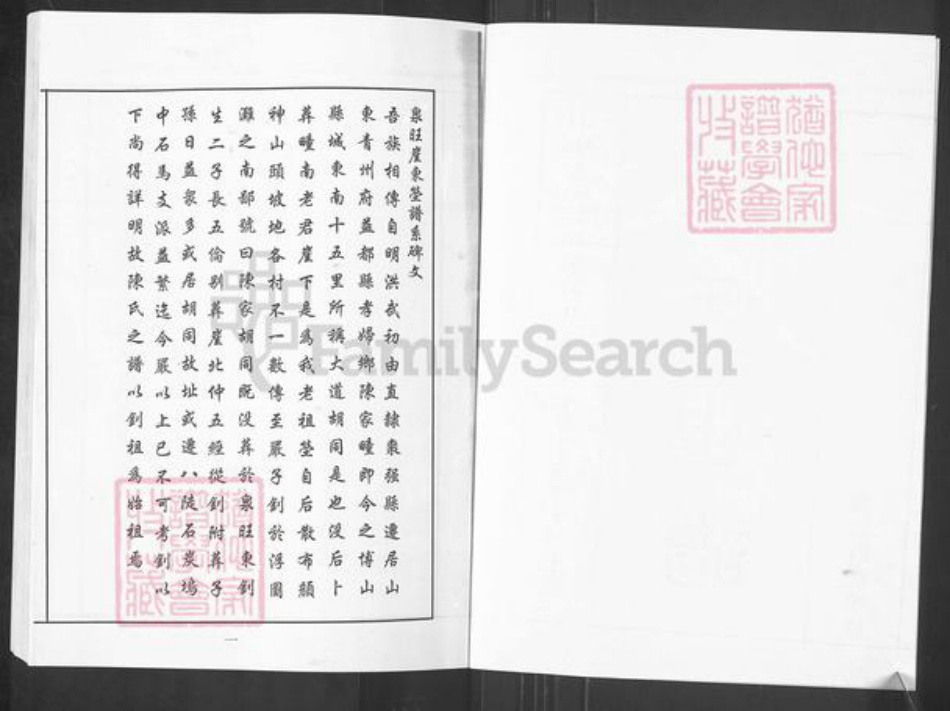 泉旺崖東塋譜系碑文
吾族相傳自明洪武初由直隸棗强縣遷居山
東青州府益都縣孝婦鄉陳家疃即今之博山
縣城東南十五里所稱大道胡同是也没后卜
葬疃南老君崖下是為我老祖塋自后散布顏
神山頭坡地各村不一數傳至嚴子釗於浮圖
灘之南鄙號曰陳家胡同既没葬於泉旺東釗
生二子長五倫别葬崖北仲五經從釗附葬子
孫日益衆多或居胡同故址或遷八陡石炭塢
中石馬支派益繁迄今嚴以上已不可考釗以
下尚得詳明故陳氏之譜以釗祖為始祖焉
一
猶他家譜學會收藏
猶他家譜學會收藏
FamilySearch